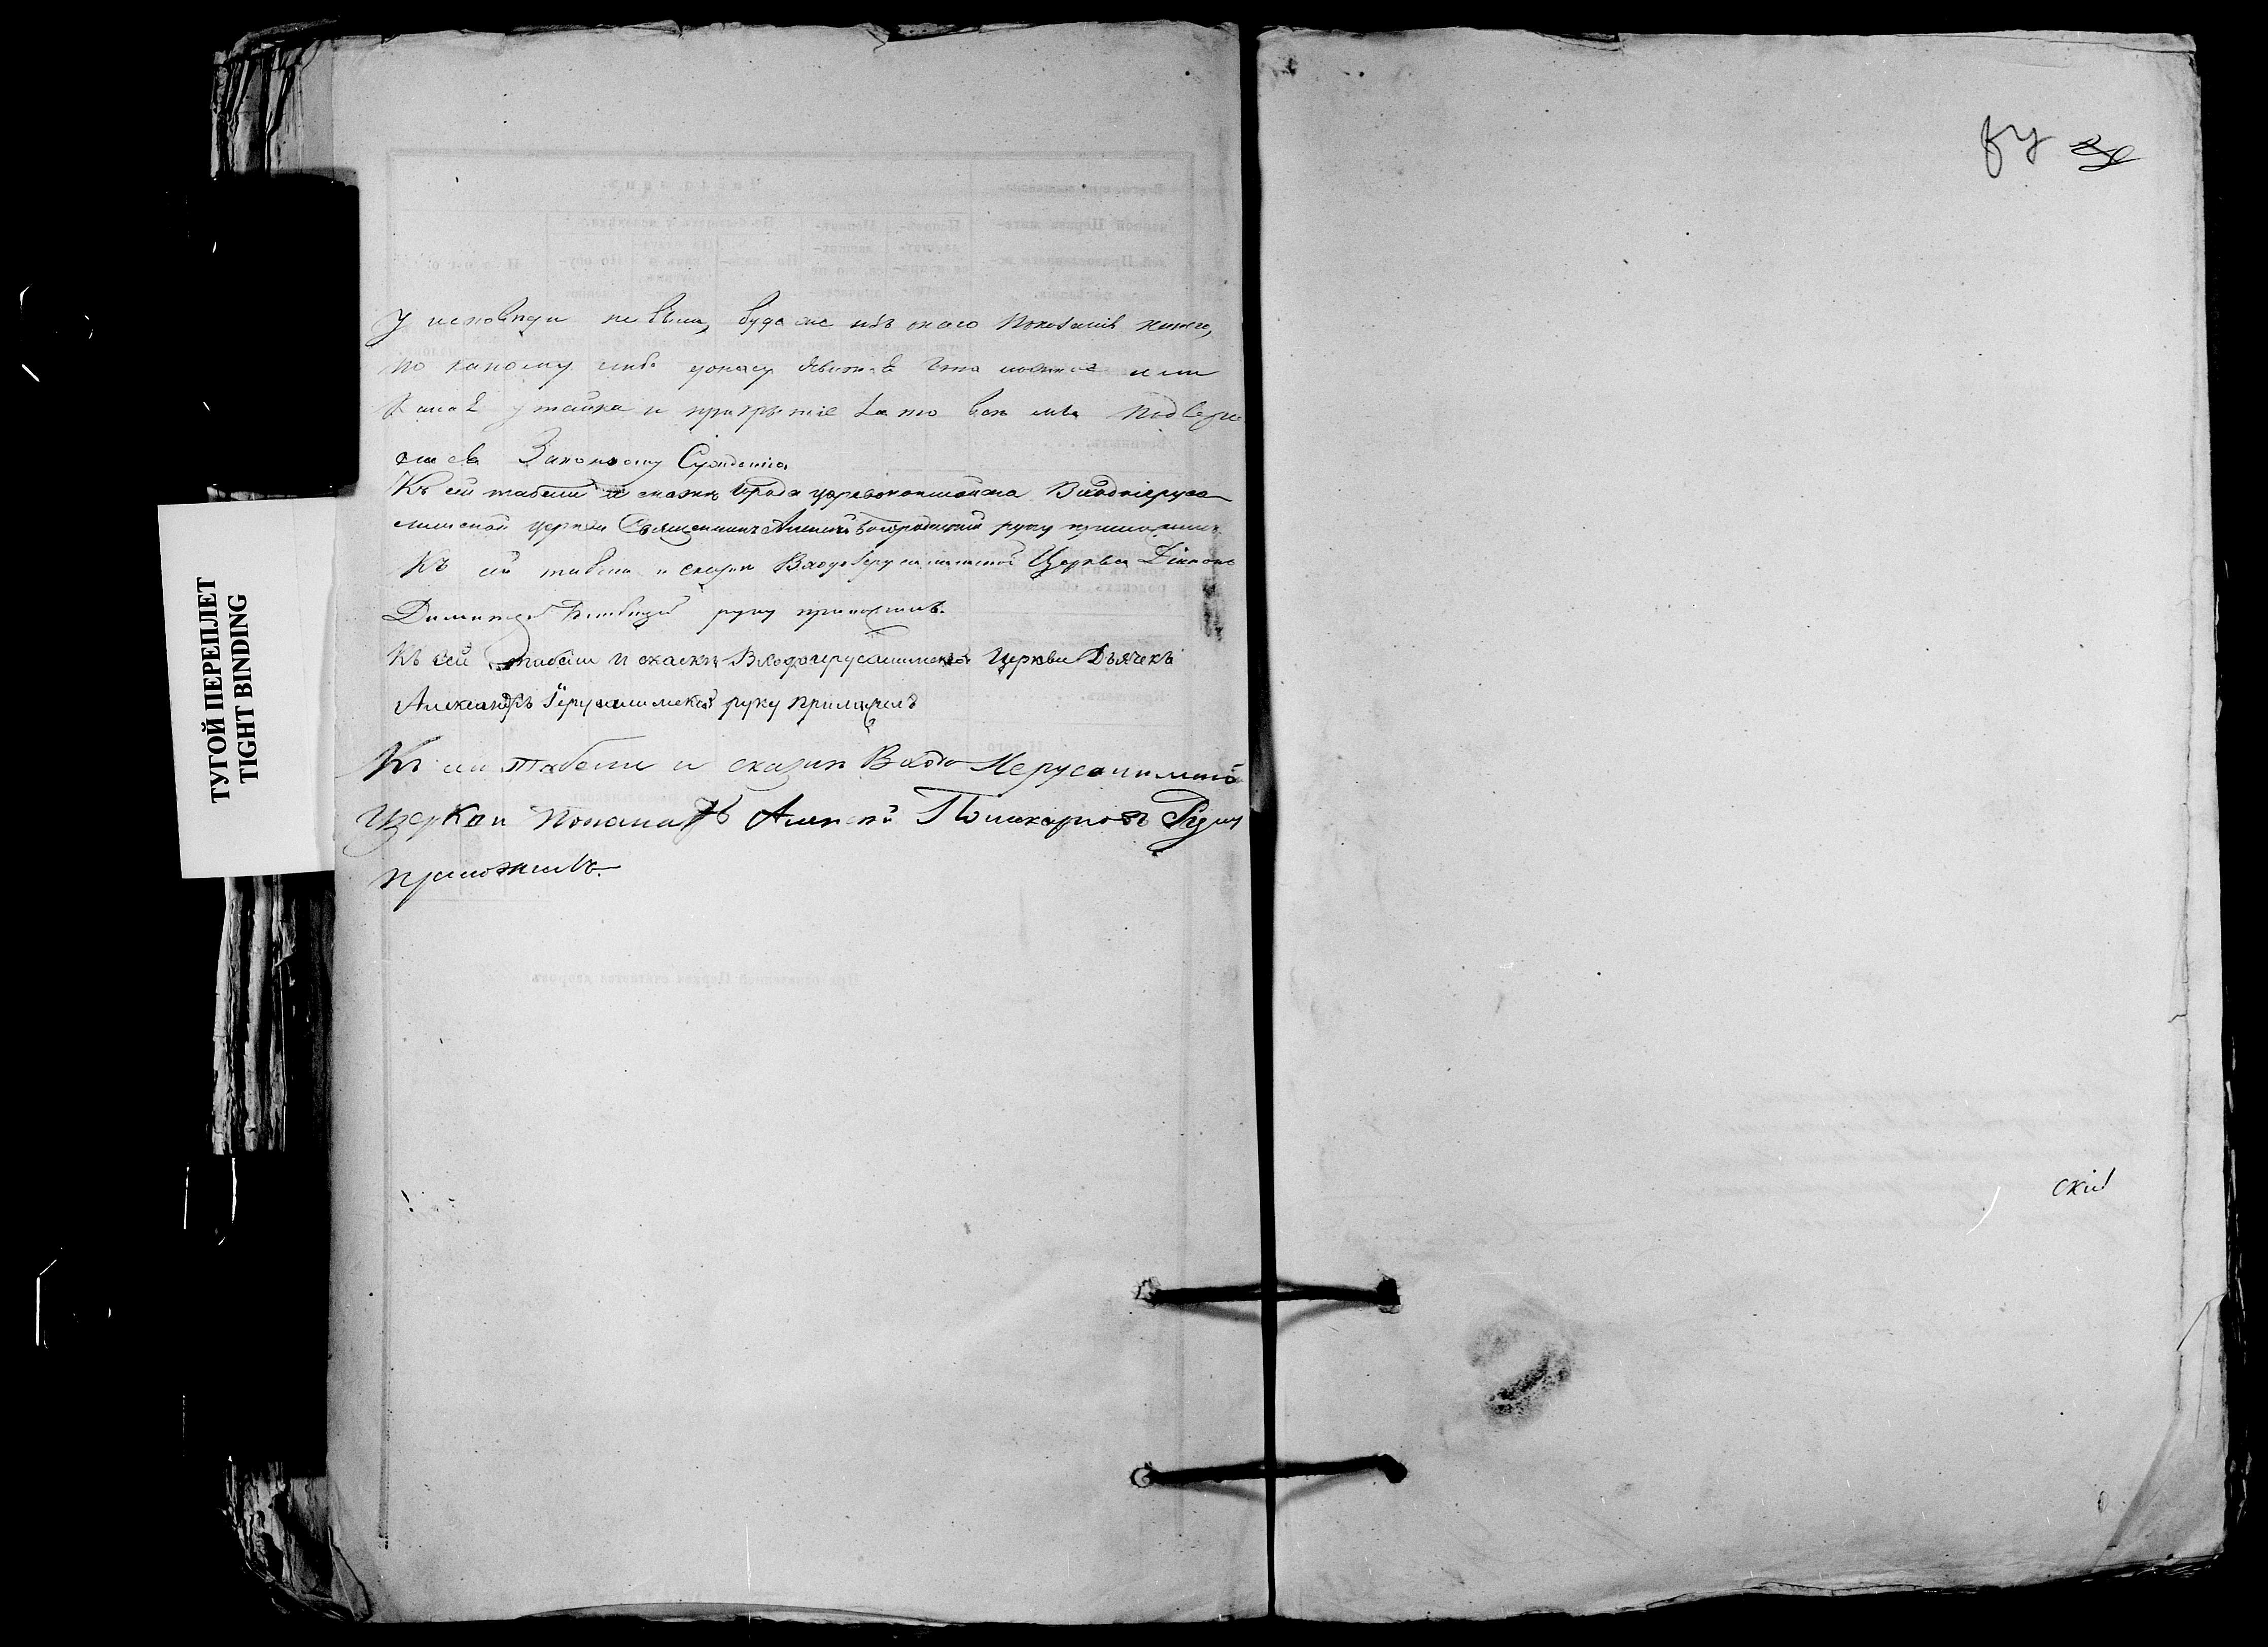 ТУГОЙ ПЕРЕПЛЕТ
TIGHT BINDING
У исповѣди не были, буде же изъ онаго показанія
по какому либо доказу явится или
какая утайка и прикрытіе за то всѣ мы подвер
гаемся Законному Сужденію
Къ сей табели и сказкѣ града царевококшайска Входоіеруса
лимской церкви Священникъ Алексѣй руку приложилъ.
Къ сей табели и сказки Входоіерусалимской Церкви Діаконъ
Димитрій руку приложилъ.
Къ сей табели и сказки Входоіерусалимской Церкви Дьячекъ
Александръ Іерусалимскій руку приложилъ
Къ сей табели и сказки Входо Иерусалимской
Церкви пономарь Алексѣй Поликарповъ Руку
приложилъ.
скій